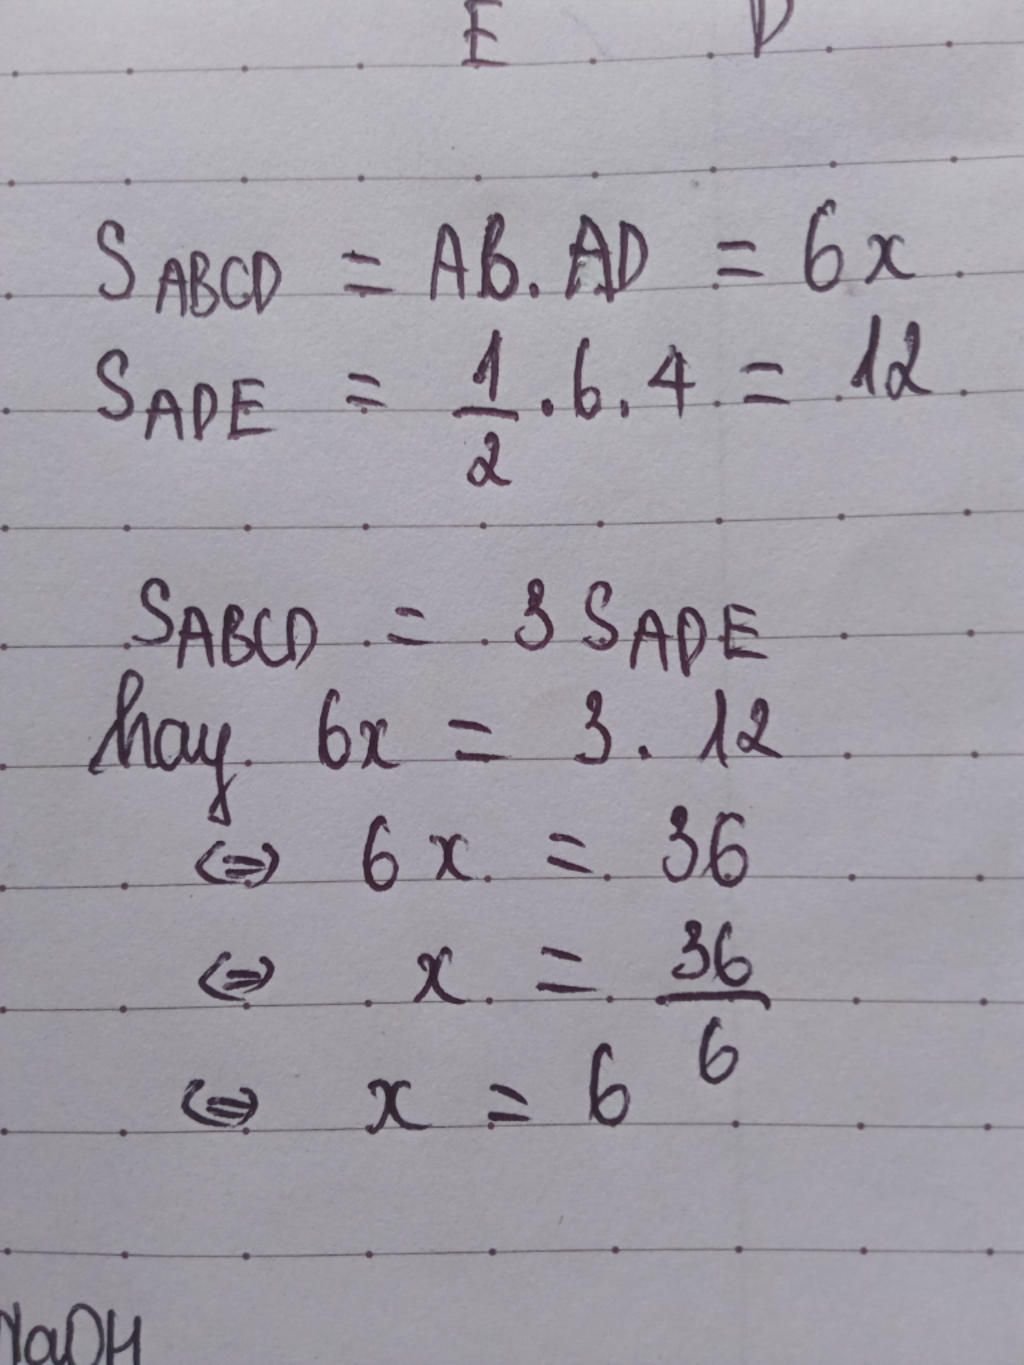 E D
S ABCD = AB . AD = 6x
S ADE = 1/2 . 6 . 4 = 12
S ABCD = 3 S ADE
hay 6x = 3 . 12
⇔ 6x = 36
⇔ x = 36/6
⇔ x = 6
NaOH